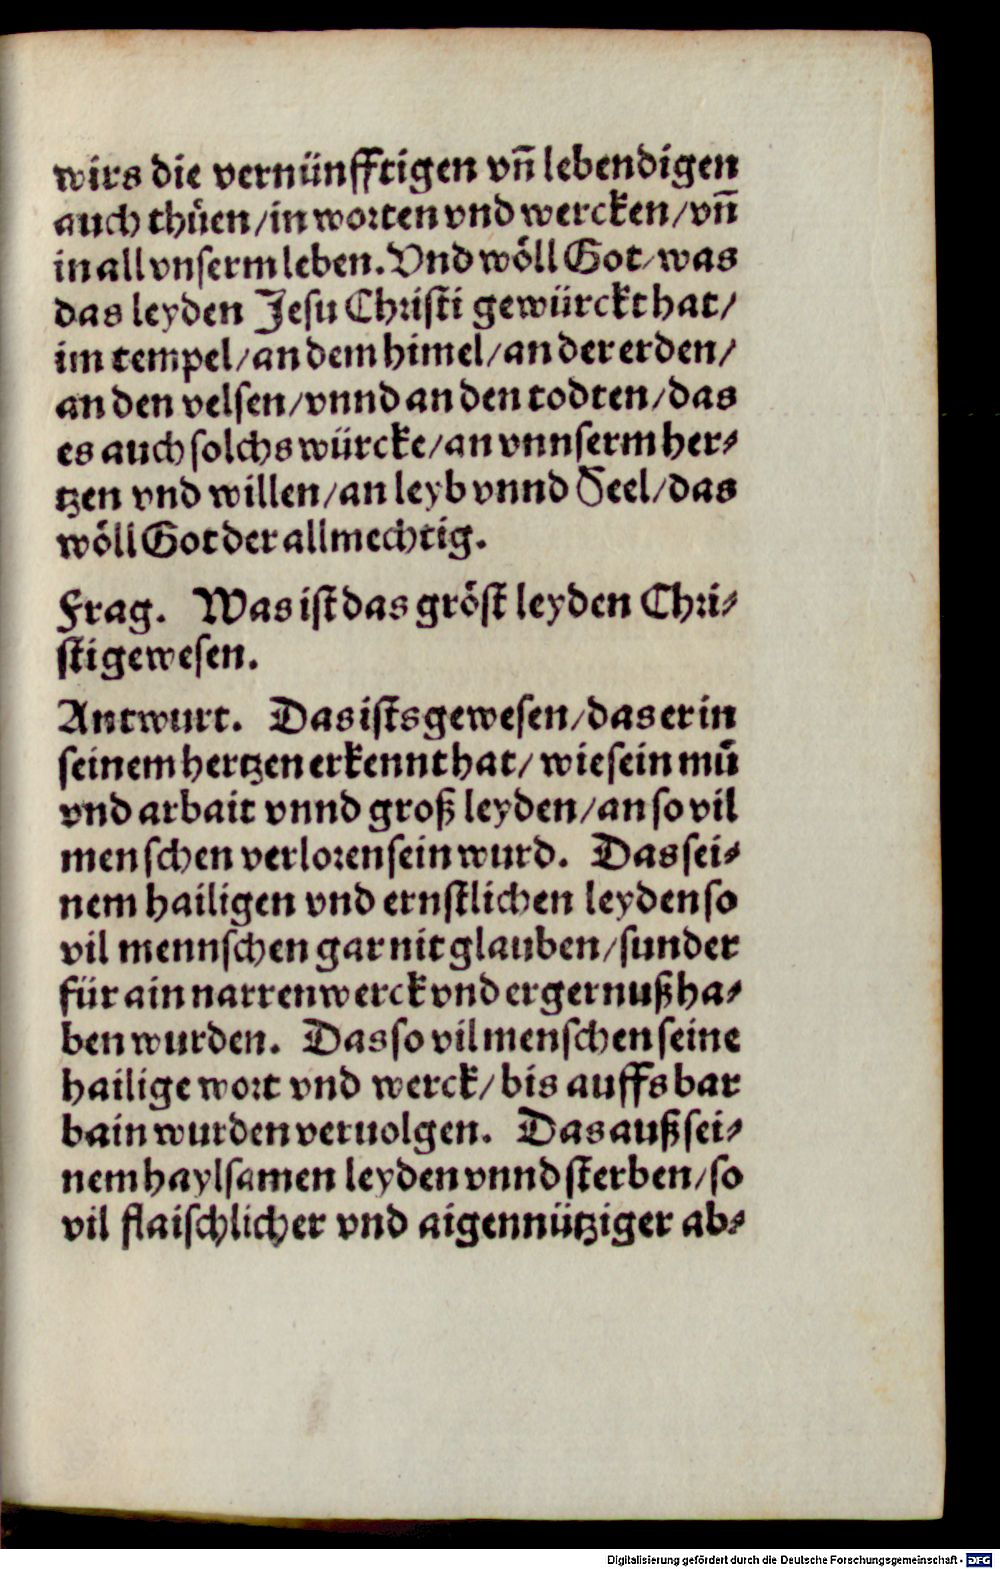 wirs die vernünfftigen vn̄ lebendigen
auch thuͤen/in worten vnd wercken/vn̄
in all vnserm leben. Vnd woͤll Got/was
das leyden Jesu Christi gewürckt hat/
im tempel/an dem himel/an der erden/
an den velsen/vnnd an den todten/das
es auch solchs würcke/an vnnserm her⸗
tzen vnd willen/an leyb vnnd Seel/das
woͤll Got der allmechtig.
Frag. Was ist das groͤst leyden Chri⸗
sti gewesen.
Antwurt. Das ists gewesen/das er in
seinem hertzen erkennt hat/ wie sein muͤ
vnd arbait vnnd groß leyden/an so vil
menschen verloren sein wurd. Das sei⸗
nem hailigen vnd ernstlichen leyden so
vil mennschen gar nit glauben/sunder
für ain narrenwerck vnd ergernuß ha⸗
ben wurden. Das so vil menschen seine
hailige wort vnd werck/bis auffs bar
bain wurden veruolgen. Das auß sei⸗
nem haylsamen leyden vnnd sterben/so
vil flaischlicher vnd aigennütziger ab⸗
Digitalisierung gefördert durch die Deutsche Forschungsgemeinschaft - DFG